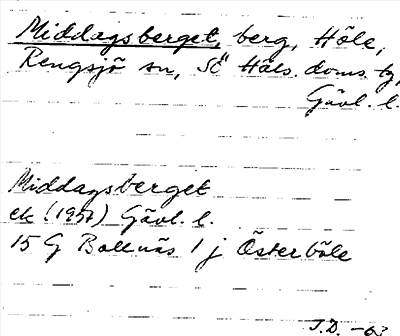 Middagsberget, berg, Höle,
Rengsjö sn, SÖ Häls. doms. tg,
Gävl. l.
Middagsberget
ek (1957) Gävl. l.
15 G Bollnäs 1 j Österböle
J.D. -63